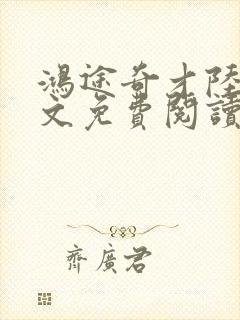 鴻途奇才陸
文免費閱讀
齊廣君